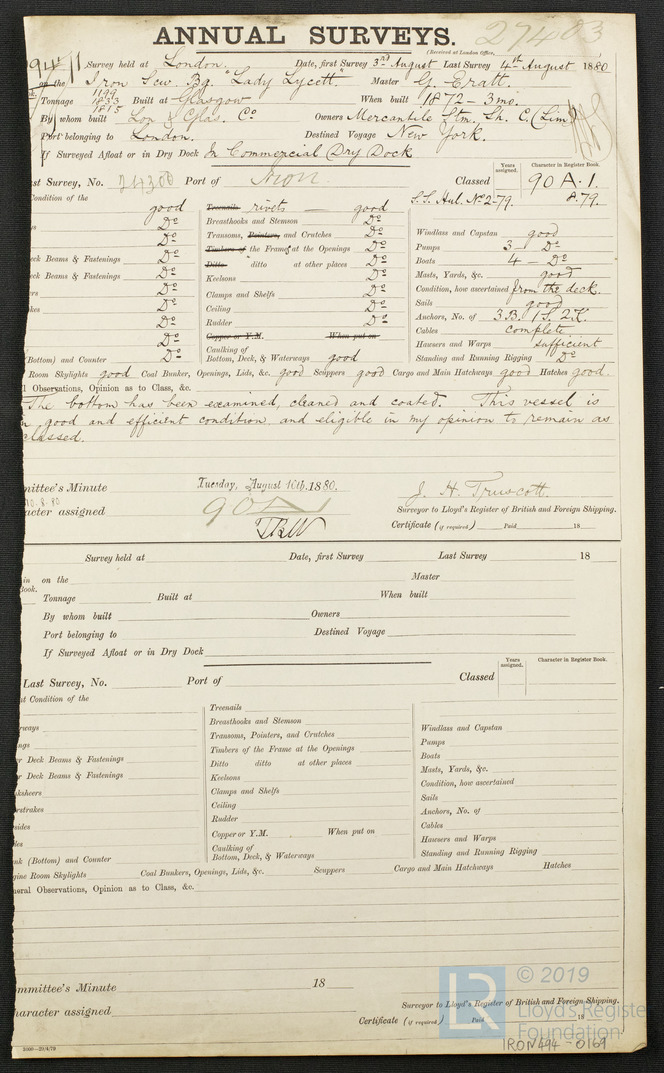 ANNUAL SURVEYS. 27403
(Received at London Office,
Survey held at London. Date, first Survey 3rd August Last Survey 4th August 1880
on the Iron Scw. Bg. "Lady Lycett" Master G. Pratt.
Tonnage 1199 1233 1815 Built at Glasgow When built 1872 - 3mo.
By whom built Lon & Glas. Co Owners Mercantile Stm. Sh. C. (Lim)
Port belonging to London. Destined Voyage New York.
If Surveyed Afloat or in Dry Dock In Commercial Dry Dock
Years assigned. Character in Register Book.
st Survey, No. 24300 Port of Iron Classed 90 A. 1.
S.S. Hul. No 2-79. 8.79.
Condition of the good Treenails rivets good
Do Breasthooks and Stemson Do
Do Transoms, Pointers, and Crutches Do Windlass and Capstan good
Do Timbers of the Frame at the Openings Do Pumps 3 - Do
eck Beams & Fastenings Do Ditto ditto at other places Do Boats 4 - Do
eck Beams & Fastenings Do Keelsons Do Masts, Yards, &c. good
Do Clamps and Shelfs Do Condition, how ascertained from the deck.
Do Ceiling Do Sails good
Do Rudder Do Anchors, No. of 3 B. 1 S. 2 K.
Do Copper or Y.M. When put on Cables complete
Caulking of Hawsers and Warps sufficient
(Bottom) and Counter Do Bottom, Deck, & Waterways good Standing and Running Rigging Do
Room Skylights good Coal Bunker, Openings, Lids, &c. good Scuppers good Cargo and Main Hatchways good Hatches good.
l Observations, Opinion as to Class, &c.
The bottom has been examined, cleaned and coated. This vessel is
n good and efficient condition, and eligible in my opinion to remain as
classed.
mittee's Minute Tuesday, August 10th, 1880. J. H. Truscott.
10.8.80
acter assigned 90A Surveyor to Lloyd's Register of British and Foreign Shipping.
Certificate (if required) Paid 18
Survey held at Date, first Survey Last Survey 18
in on the Master
Book.
Tonnage Built at When built
By whom built Owners
Port belonging to Destined Voyage
If Surveyed Afloat or in Dry Dock
Years assigned. Character in Register Book.
Last Survey, No. Port of Classed
t Condition of the
Treenails
rways Breasthooks and Stemson Windlass and Capstan
ngs Transoms, Pointers, and Crutches Pumps
r Deck Beams & Fastenings Timbers of the Frame at the Openings Boats
r Deck Beams & Fastenings Ditto ditto at other places Masts, Yards, &c.
ksheers Keelsons Condition, how ascertained
rstrakes Clamps and Shelfs Sails
sides Ceiling Anchors, No. of
les Rudder Cables
Copper or Y.M. When put on Hawsers and Warps
nk (Bottom) and Counter Caulking of Bottom, Deck, & Waterways Standing and Running Rigging
gine Room Skylights Coal Bunkers, Openings, Lids, &c. Scuppers Cargo and Main Hatchways Hatches
neral Observations, Opinion as to Class, &c.
mmittee's Minute 18
haracter assigned Surveyor to Lloyd's Register of British and Foreign Shipping.
Certificate (if required) Paid 18
LR © 2019
Lloyd's Register
Foundation
IRON494-0169
3000-20/4/79